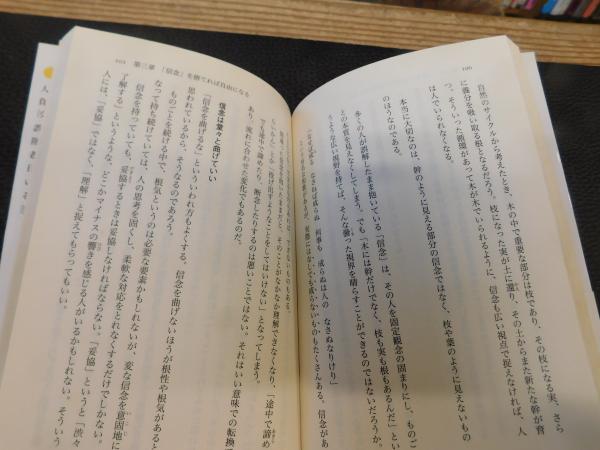 106
自然のサイクルから考えたとき、木の中で重要な部分は枝であり、その枝になる実、さら
に養分を吸い取る根となるだろう。枝になった実が土に還り、その土からまた新たな幹が育
つ。そういった循環があって木が木でいられるように、信念も広い視点で捉えなければ、人
は人でいられなくなる。
本当に大切なのは、幹のように見える部分の信念ではなく、枝や葉のように見えないもの
のほうなのだ。
多くの人が誤解したまま抱いている「信念」は、その人を固定観念の固まりにし、ものご
との本質を見えなくしてしまう。でも「木には幹だけでなく、枝も実も根もあるんだ」とい
うような広い視野を持てば、そんな曇った視界を晴らすことができるのではないだろうか。
成らぬは人の なさぬなりけり」
105 第三章 「信念」を捨てれば自由になる
のことをしてはいけない」となってしまう。
でも途中で諦めたり、断念したりするのは悪いことではない。それはいい意味での転換で
あり、流れに合わせた変化でもあるのだ。
信念は堂々と曲げていい
「信念を曲げるな」といういわれ方もよくする。信念を曲げないほうが根性や根気があると
思われているから、そうなるのであろう。
ものごとを続ける中で、根気というのは必要な要素かもしれないが、変な信念を意固地に
なって持ち続けていては、人の思考を固くし、柔軟な対応をとれなくするだけでしかない。
信念を持っていても、妥協するときは妥協しなければならない。「妥協」というと「渋々
了解する」というような、どこかマイナスの響きを感じる人がいるかもしれない。そういう
人には、「妥協」ではなく、「理解」と捉えてもらってもいい。